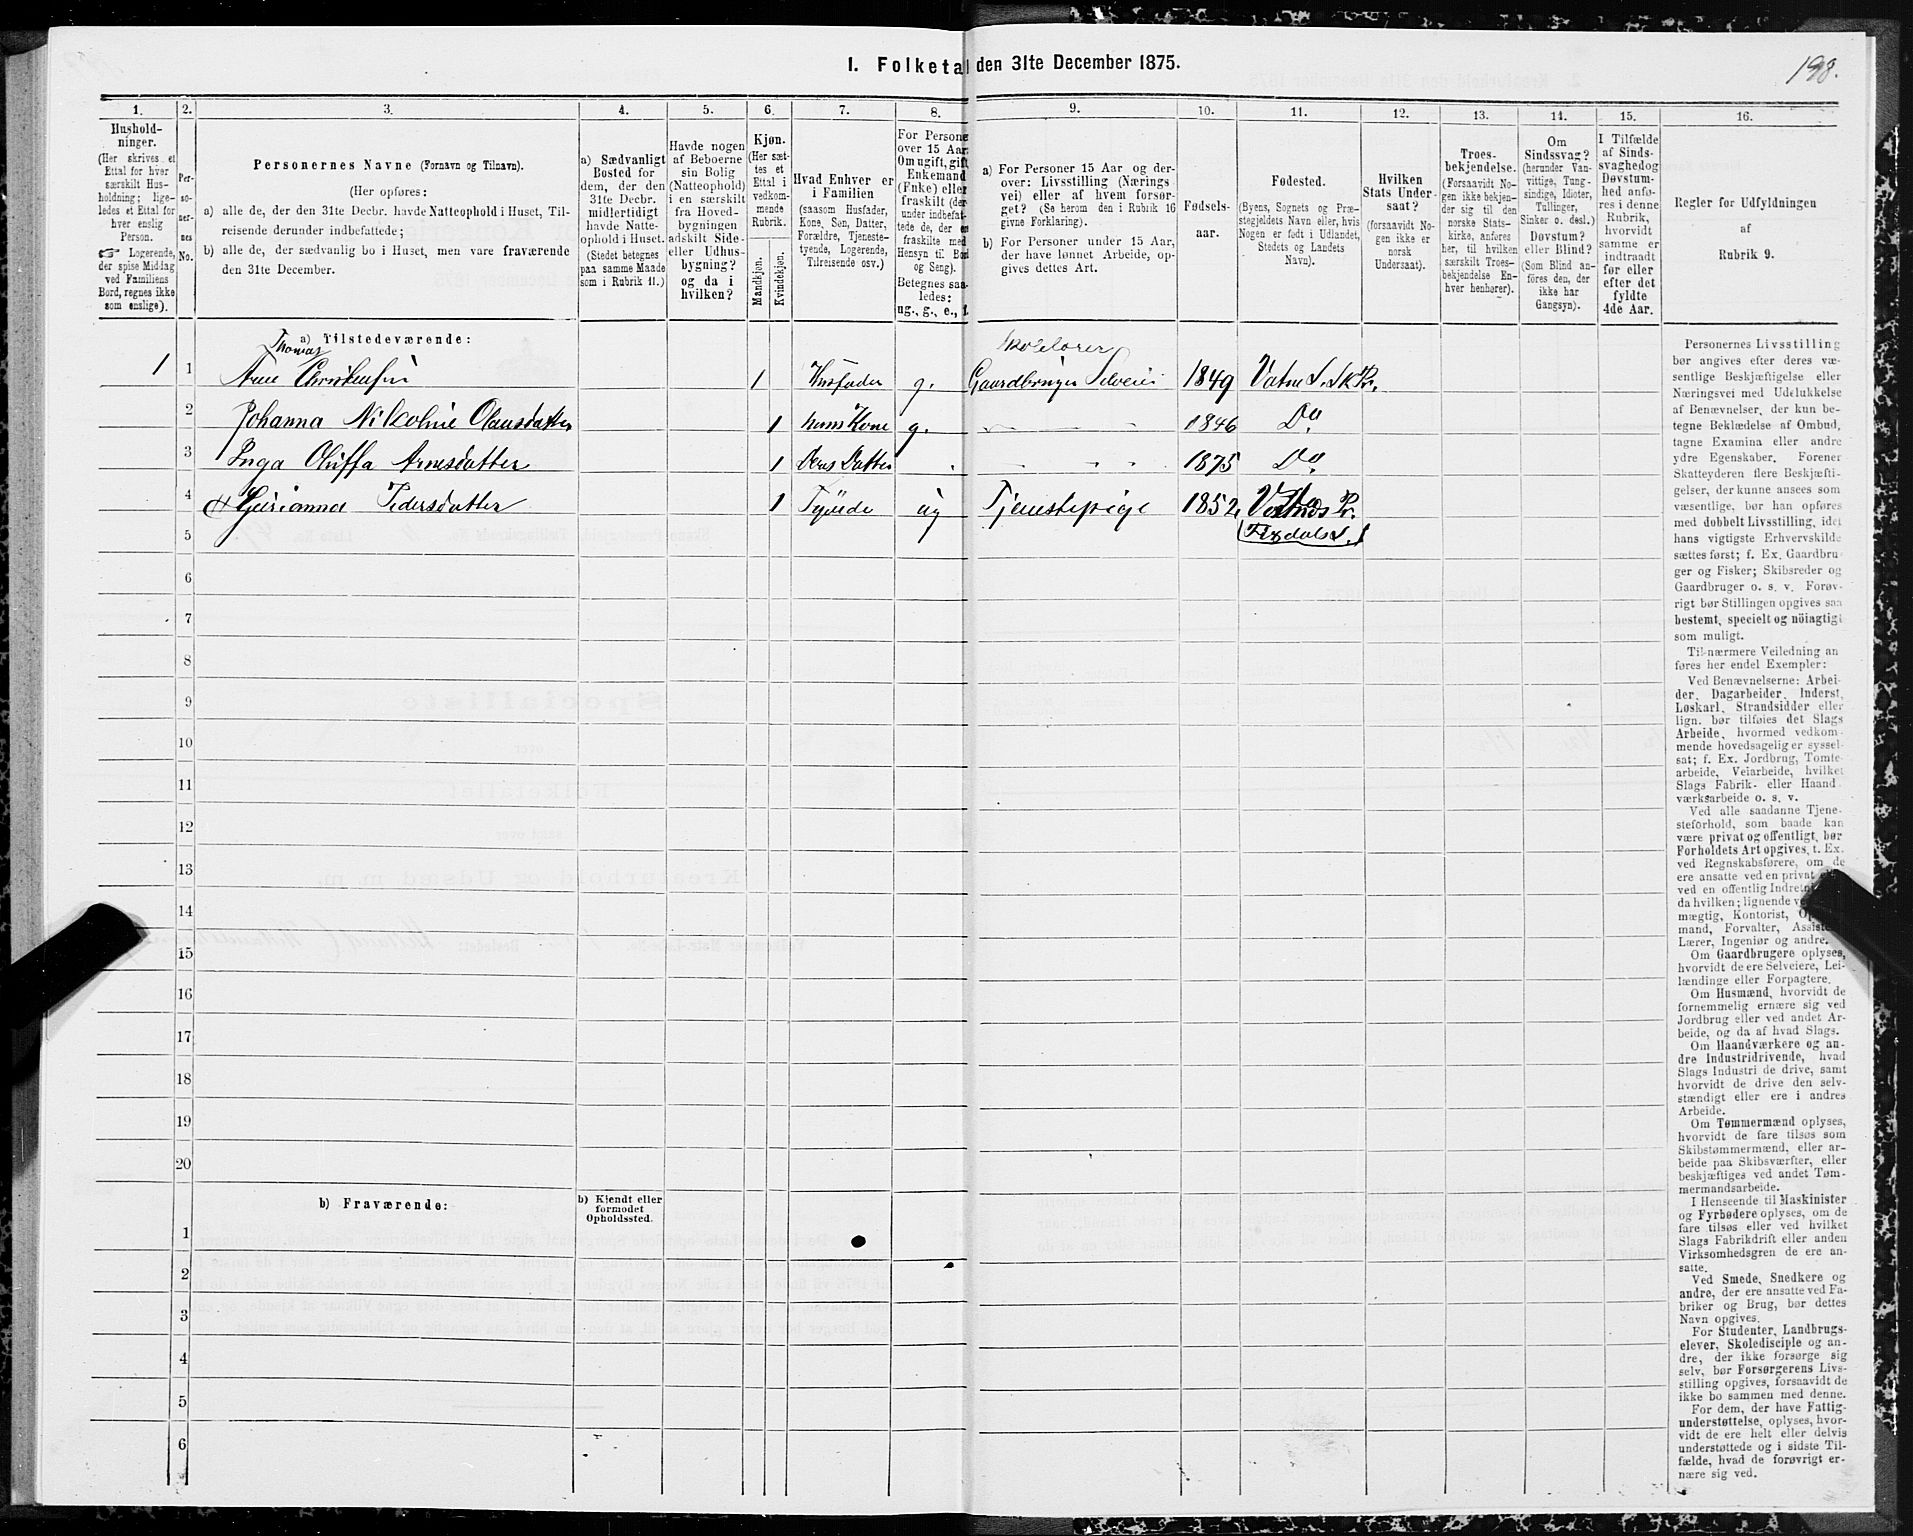 198.
1. Folketal den 31te December 1875.
1. 2. 3. 4. 5. 6. 7. 8. 9. 10. 11. 12. 13. 14. 15. 16.
Hushold-
ninger.
(Her skrives et
Ettal for hver
særskilt Hus-
holdning; lige-
ledes et Ettal for
hver enslig
Person.
☞ Logerende,
der spise Middag
ved Familiens
Bord, regnes ikke
som enslige).
Per-
so-
ner-
nes
No.
Personernes Navne (Fornavn og Tilnavn).
(Her opføres:
a) alle de, der den 31te Decbr. havde Natteophold i Huset, Til-
reisende derunder indbefattede;
b) alle de, der sædvanlig bo i Huset, men vare fraværende
den 31te December.
a) Sædvanligt
Bosted for
dem, der den
31te Decbr.
midlertidigt
havde Natte-
ophold i Huset.
(Stedet betegnes
paa samme Maade
som i Rubrik 11.)
Havde nogen
af Beboerne
sin Bolig
(Natteophold)
i en særskilt
fra Hoved-
bygningen
adskilt Side-
eller Udhus-
bygning?
og da i
hvilken?
Kjøn.
(Her sæt-
tes et
Ettal i
vedkom-
mende
Rubrik.
Mandkjøn.
Kvindekjøn.
Hvad Enhver er
i Familien
(saasom Husfader,
Kone, Søn, Datter,
Forældre, Tjeneste-
tyende, Logerende,
Tilreisende osv.)
For Persone
over 15 Aar:
Om ugift, gift,
Enkemand
(Enke) eller
fraskilt (der-
under indbefat-
tede de, der er
fraskilte med
Hensyn til Bord
og Seng).
Betegnes saa-
ledes:
ug., g., e., f.
a) For Personer 15 Aar og der-
over: Livsstilling (Nærings
vei) eller af hvem forsør-
get? (Se herom den i Rubrik 16
givne Forklaring).
b) For Personer under 15 Aar,
der have lønnet Arbeide, op-
gives dettes Art.
Fødsels-
aar.
Fødested.
(Byens, Sognets og Præ-
stegjeldets Navn eller, hvis
Nogen er født i Udlandet,
Stedets og Landets
Navn).
Hvilken
Stats Under-
saat?
(forsaavidt No-
gen ikke er
norsk
Undersaat).
Troes-
bekjendelse.
(Forsaavidt No-
gen ikke bekjen-
der sig til den
norske Stats-
kirke, anføres
her, til hvilken
særskilt Troes-
bekjendelse En-
hver henhører).
Om
Sindssvag?
(herunder Van-
vittige, Tung-
sindige, Idioter,
Tullinger,
Sinker o. desl.)
Døvstum?
eller Blind?
(Som Blind an-
føres den, der
ikke har
Gangsyn).
I Tilfælde
af Sinds-
svaghed og
Døvstum-
hed anfø-
res i denne
Rubrik,
hvorvidt
samme er
indtraadt
før eller
efter det
fyldte
4de Aar.
Regler for Udfyldningen
af
Rubrik 9.
a) Tilstedeværende:
Thomas Skolelærer
1 1 Arne Christensen 1 Husfader g. Gaardbruger Selveier 1849 Vatne S. Sk Pr.
2 Johanna Nikoline Olausdatter 1 hans Kone g. 1846 Do
3 Inga Oluffa Arnesdatter 1 Deres Datter 1875 Do
4 Pedersdatter 1 Tyende ug Tjenstepige 1852 Pr.
5
6
7
8
9
10
11
12
13
14
15
16
17
18
19
20
b) Fraværende:
b) Kjendt eller
formodet
Opholdssted.
1
2
3
4
5
6
Personernes Livsstilling
bør angives efter deres væ-
sentlige Beskjæftigelse eller
Næringsvei med Udelukkelse
af Benævnelser, der kun be-
tegne Beklædelse af Ombud,
tagne Examina eller andre
ydre Egenskaber. Forener
Skatteyderen flere Beskjæfti-
gelser, der kunne ansees som
væsentlige, bør han opføres
med dobbelt Livsstilling, idet
hans vigtigste Erhvervskilde
sættes først; f. Ex. Gaardbru-
ger og Fisker; Skibsreder og
Gaardbruger o. s. v. Forøv-
rigt bør Stillingen opgives saa
bestemt, specielt og nöiagtigt
som muligt.
Til nærmere Veiledning an
føres her endel Exempler:
Ved Benævnelserne: Arbei-
der, Dagarbeider, Inderst,
Løskarl, Strandsidder eller
lign. bør tilføies det Slags
Arbeide, hvormed vedkom-
mende hovedsagelig er syssel-
sat; f. Ex. Jordbrug, Tomte-
arbeide, Veiarbeide, hvilket
Slags Fabrik- eller Haand
værksarbeide o. s. v.
Ved alle saadanne Tjene-
steforhold, som baade kan
være privat og offentligt, bør
Forholdets Art opgives, f. Ex.
ved Regnskabsførere, om de
ere ansatte ved en privat
ved en offentlig
da hvilken; lignende
mægtig, Kontorist,
mand, Forvalter,
Lærer, Ingeniør og andre.
Om Gaardbrugere oplyses,
hvorvidt de ere Selveiere, Lei-
lændinge eller Forpagtere.
Om Husmænd, hvorvidt de
fornemmelig ernære sig ved
Jordbrug eller ved andet Ar-
beide, og da af hvad Slags.
Om Haandværkere og an-
dre Industridrivende, hvad
Slags Industri de drive, samt
hvorvidt de drive den selv-
stændigt eller ere i andres
Arbeide.
Om Tømmermænd oplyses,
hvorvidt de fare tilsøs som
Skibstømmermænd, eller ar-
beide paa Skibsværfter, eller
beskjæftiges ved andet Tøm-
mermandsarbeide.
I Henseende til Maskinister
og Fyrbødere oplyses, om de
fare tilsøs eller ved hvilket
Slags Fabrikdrift eller anden
Virksomhedsgren de ere an-
satte.
Ved Smede, Snedkere og
andre, der ere ansatte ved Fa-
briker og Brug, bør dettes
Navn opgives.
For Studenter, Landbrugs-
elever, Skoledisciple og an-
dre, der ikke forsørge sig
selv, bør Forsørgerens Livs-
stilling opgives, forsaavidt de
ikke bo sammen med denne.
For dem, der have Fattig-
understøttelse, oplyses, hvor-
vidt de ere helt eller delvis
understøttede og i sidste Til-
fælde, hvad de forøvrigt er-
nære sig ved.